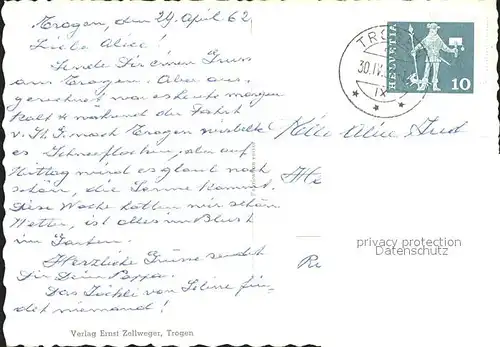 Trogen, den 29. April 62
Liebe Alice!
Sende Dir einen Gruss
aus Trogen. Aber aus-
gerechnet war es heute morgen
kalt & während der Fahrt
v. St. G. nach Trogen wirbelte
es Schneeflocken, aber auf
Mittag wird es glaub noch
schön, die Sonne kommt.
Diese Woche hatten wir schön
Wetter, ist alles im Blust
im Garten.
Herzliche Grüsse sendet
Dir Dein Pappa.
Das von fin-
det niemand!
Verlag Ernst Zellweger, Trogen
TRO
30.IV.
IX
HELVETIA
10
Alice
privacy protection
Datenschutz